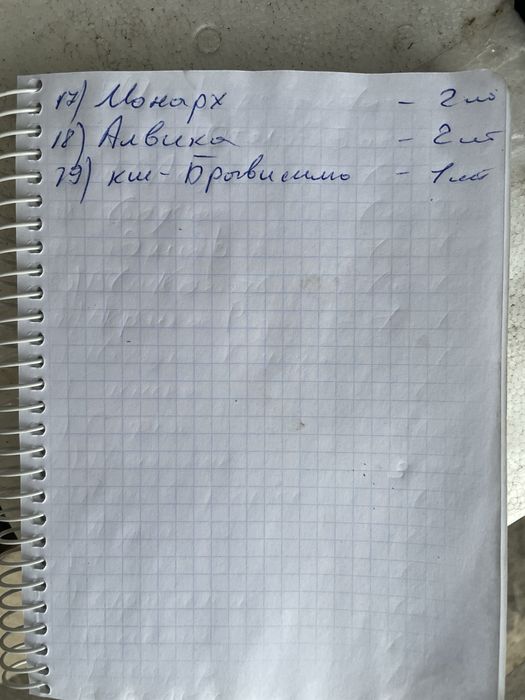 17) Монарх - 2 шт
18) Алвика - 2 шт
19) кш - Брависимо - 1 шт